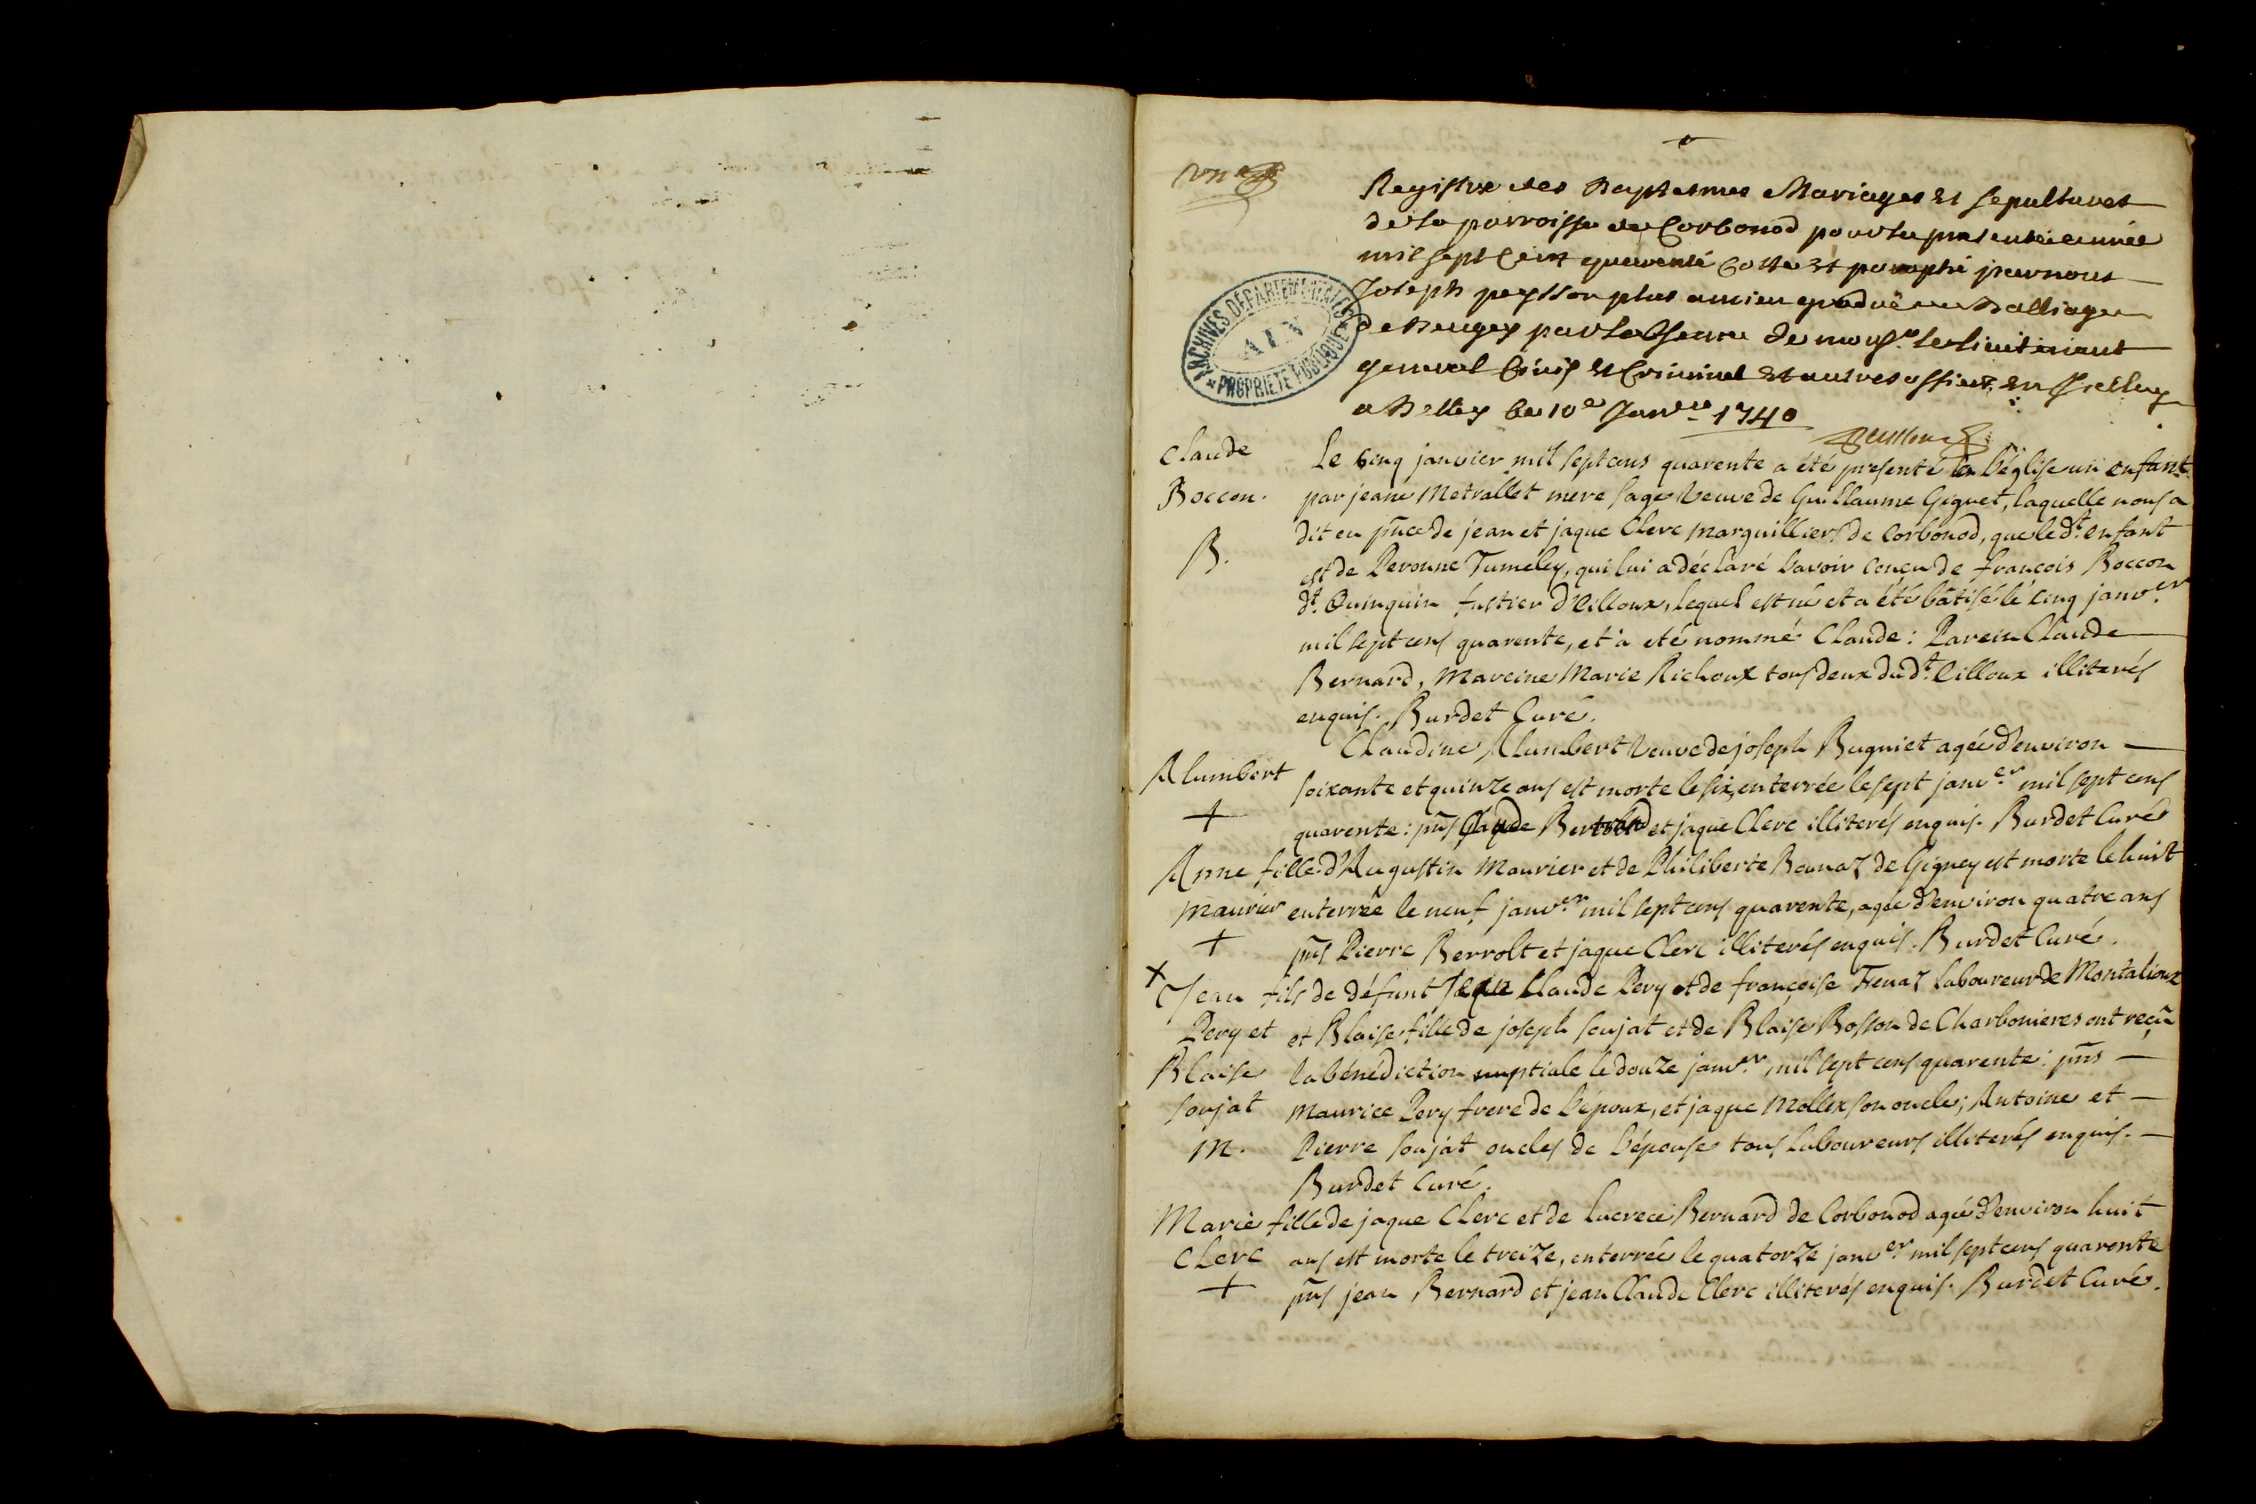 vn
Registre des Baptesmes Mariages et sepultures
de la parroisse de Corbonod pour la presente année
mil sept Cent quarente Cotté et paraphé par nous
Joseph peysson plus ancien gradué au Balliage
de Beugey par labsence de mons.r le lieutenant
general Civil et Criminel et autres officiers en Iceluy
a Belley le 10e Janvie 1740
ARCHIVES DÉPARTEMENTALES
AIN
PROPRIÉTÉ PUBLIQUE
Claude
Boccon.
B.
Le Cinq janvier mil sept cens quarente a été presenté à l'église un enfant
par jeane Metrallet mere sage veuve de Guillaume Giguet, laquelle nous a
dit en pnce de jean et jaque Clerc marguilliers de Corbonod, que led.t enfant
est de Peronne Tumeley, qui lui a déclaré l'avoir conçu de françois Boccon
d.t Quinquin fustier d'Eilloux, lequel est né et a été bâtisé le cinq janv.er
mil sept cens quarente, et a eté nommé Claude: Parein Claude
Bernard, Mareine Marie Richoux tous deux dud.t Eilloux illiterés
enquis. Burdet Curé.
Alumbert
+
Claudine Alumbert veuve de joseph Buguiet agée d'environ
soixante et quinze ans est morte le six, enterrée le sept janv.er mil sept cens
quarente: pns Claude et jaque Clerc illiterés enquis. Burdet Curé
Anne fille d'Augustin Maurier et de Philiberte Bounaz de Gigney est morte le huit
Maurier enterrée le neuf janv.er mil sept cens quarente, agée d'environ quatre ans
+ pns Pierre Berrolt et jaque Clerc illiterés enquis. Burdet Curé.
+
Jean fils de défunt Jean Claude Pery et de françoise Trenaz laboureur de Montalioux
Pery et et Blaise fille de joseph Soujat et de Blaise Bosson de Charbonieres ont reçu
Blaise la bénédiction nuptiale le douze janv.er mil sept cens quarente: pns
Soujat Maurice Pery frere de l'époux, et jaque Mollex son oncle; Antoine et
M. Pierre Soujat oncles de l'épouse tous laboureurs illiterés enquis.
Burdet Curé.
Marie fille de jaque Clerc et de Lucrece Bernard de Corbonod agée d'environ huit
Clerc ans est morte le treize, enterrée le quatorze janv.er mil sept cens quarente
+ pns jean Bernard et jean Claude Clerc illiterés enquis. Burdet Curé.